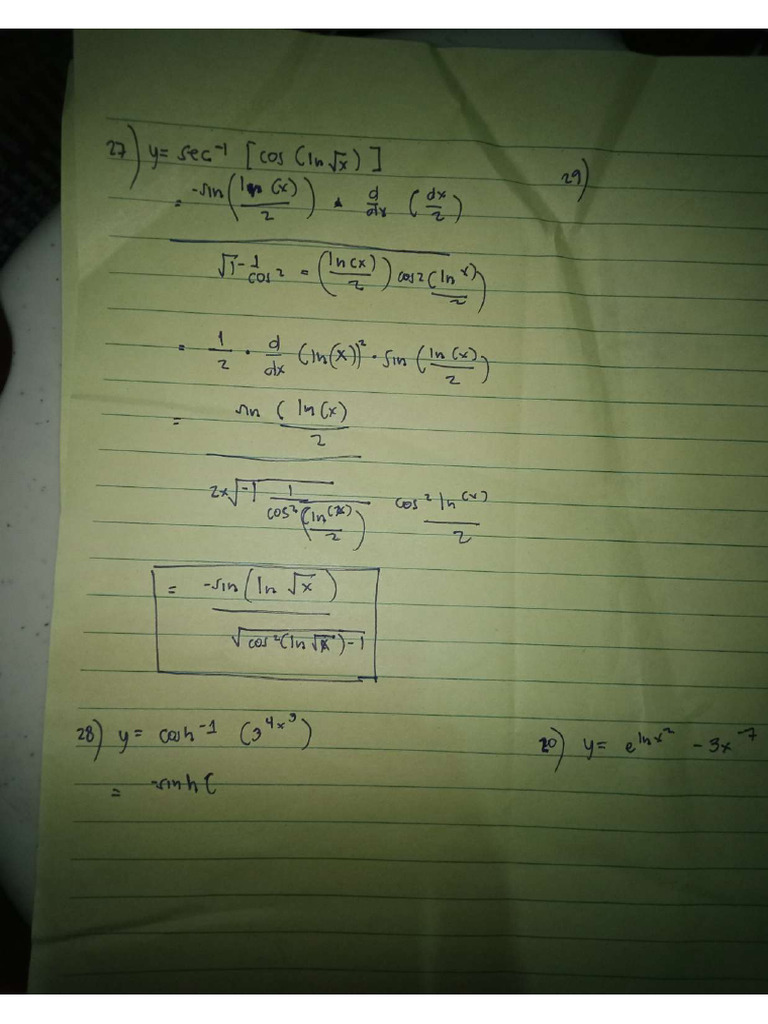 27) y = sec⁻¹ [cos (ln √x)]
= -sin (ln (x)/2) · d/dx (dx/2)
√1 - 1/cos² = (ln(x)/2) cos2 (ln x/2)
= 1/2 · d/dx (ln(x))² · sin (ln(x)/2)
= sin (ln(x)/2
2x√-1 1/cos² (ln(x)/2) cos² ln(x)/2
= -sin (ln √x) / √cos² (ln √x) - 1
28) y = cosh⁻¹ (3^4x³)
= -sinh (
29)
20) y = e^ln x² - 3x⁻⁷